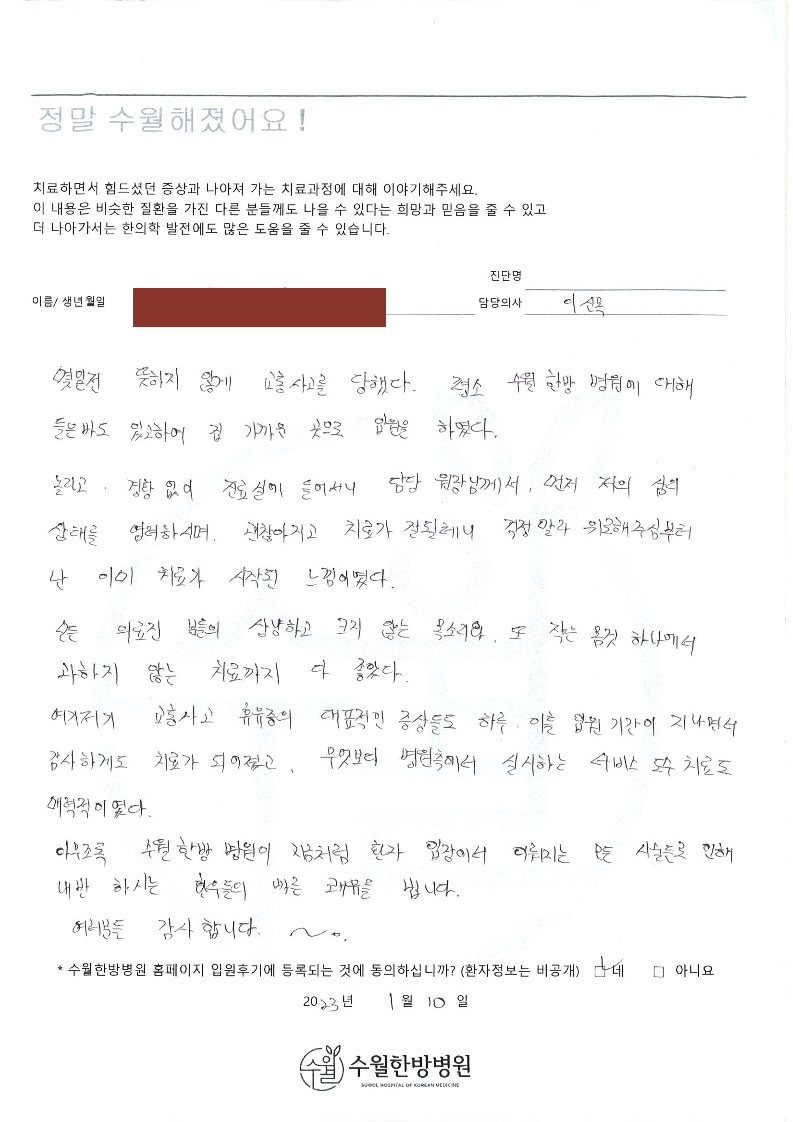 정말 수월해졌어요!
치료하면서 힘드셨던 증상과 나아져 가는 치료과정에 대해 이야기해주세요.
이 내용은 비슷한 질환을 가진 다른 분들께도 나을 수 있다는 희망과 믿음을 줄 수 있고
더 나아가서는 한의학 발전에도 많은 도움을 줄 수 있습니다.
진단명
이름/ 생년월일
담당의사 이선목
몇일전 뜻하지 않게 교통사고를 당했다. 평소 수월 한방 병원에 대해
들은바도 있고하여 집 가까운 곳으로 입원을 하였다.
놀라고. 경황 없이 진료실에 들어서니 담당 원장님께서, 먼저 저의 심의
상태를 염려하시며. 괜찮아지고 치료가 잘될테니 걱정 말라 위로해주심부터
난 이미 치료가 시작된 느낌이였다.
모든 의료진 분들의 상냥하고 크지 않는 목소리와, 또 작은 몸짓 하나에서
과하지 않는 치료까지 다 좋았다.
여기저기 교통사고 휴유증의 대표적인 증상들도 하루. 이틀 입원 기간이 지나면서
감사하게도 치료가 되어졌고, 무엇보다 병원측에서 실시하는 서비스 도수 치료도
매력적이였다.
아무조록 수월 한방 병원이 지금처럼 환자 입장에서 이뤄지는 모든 시술들로 인해
내방 하시는 환우들의 빠른 쾌유를 빕니다.
여러분들 감사 합니다. ~.
* 수월한방병원 홈페이지 입원후기에 등록되는 것에 동의하십니까? (환자정보는 비공개) ☑네 □ 아니요
2023년 1월 10일
수월
수월한방병원
SUWOL HOSPITAL OF KOREAN MEDICINE